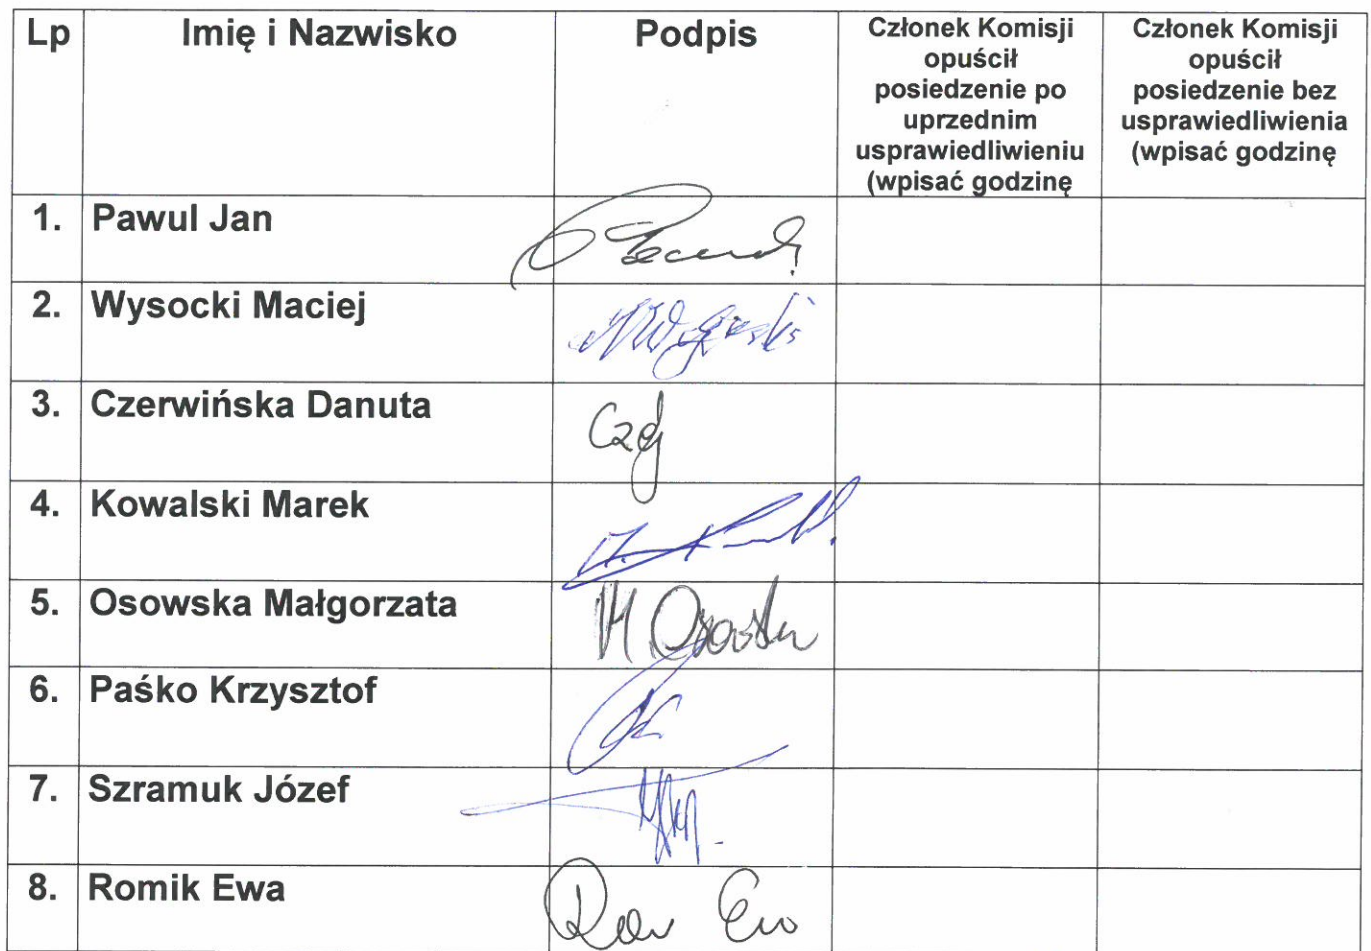 Lp Imię i Nazwisko Podpis Członek Komisji opuścił posiedzenie po uprzednim usprawiedliwieniu (wpisać godzinę Członek Komisji opuścił posiedzenie bez usprawiedliwienia (wpisać godzinę
1. Pawul Jan
2. Wysocki Maciej
3. Czerwińska Danuta
4. Kowalski Marek
5. Osowska Małgorzata
6. Paśko Krzysztof
7. Szramuk Józef
8. Romik Ewa